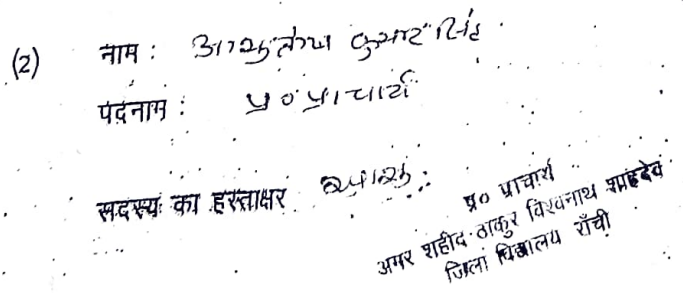 (2) नाम : आशुतोष कुमार सिंह
पदनाम : प्र० प्राचार्य
सदस्य का हस्ताक्षर
प्र० प्राचार्य
अमर शहीद ठाकुर विश्वनाथ शाहदेव
जिला विद्यालय राँची